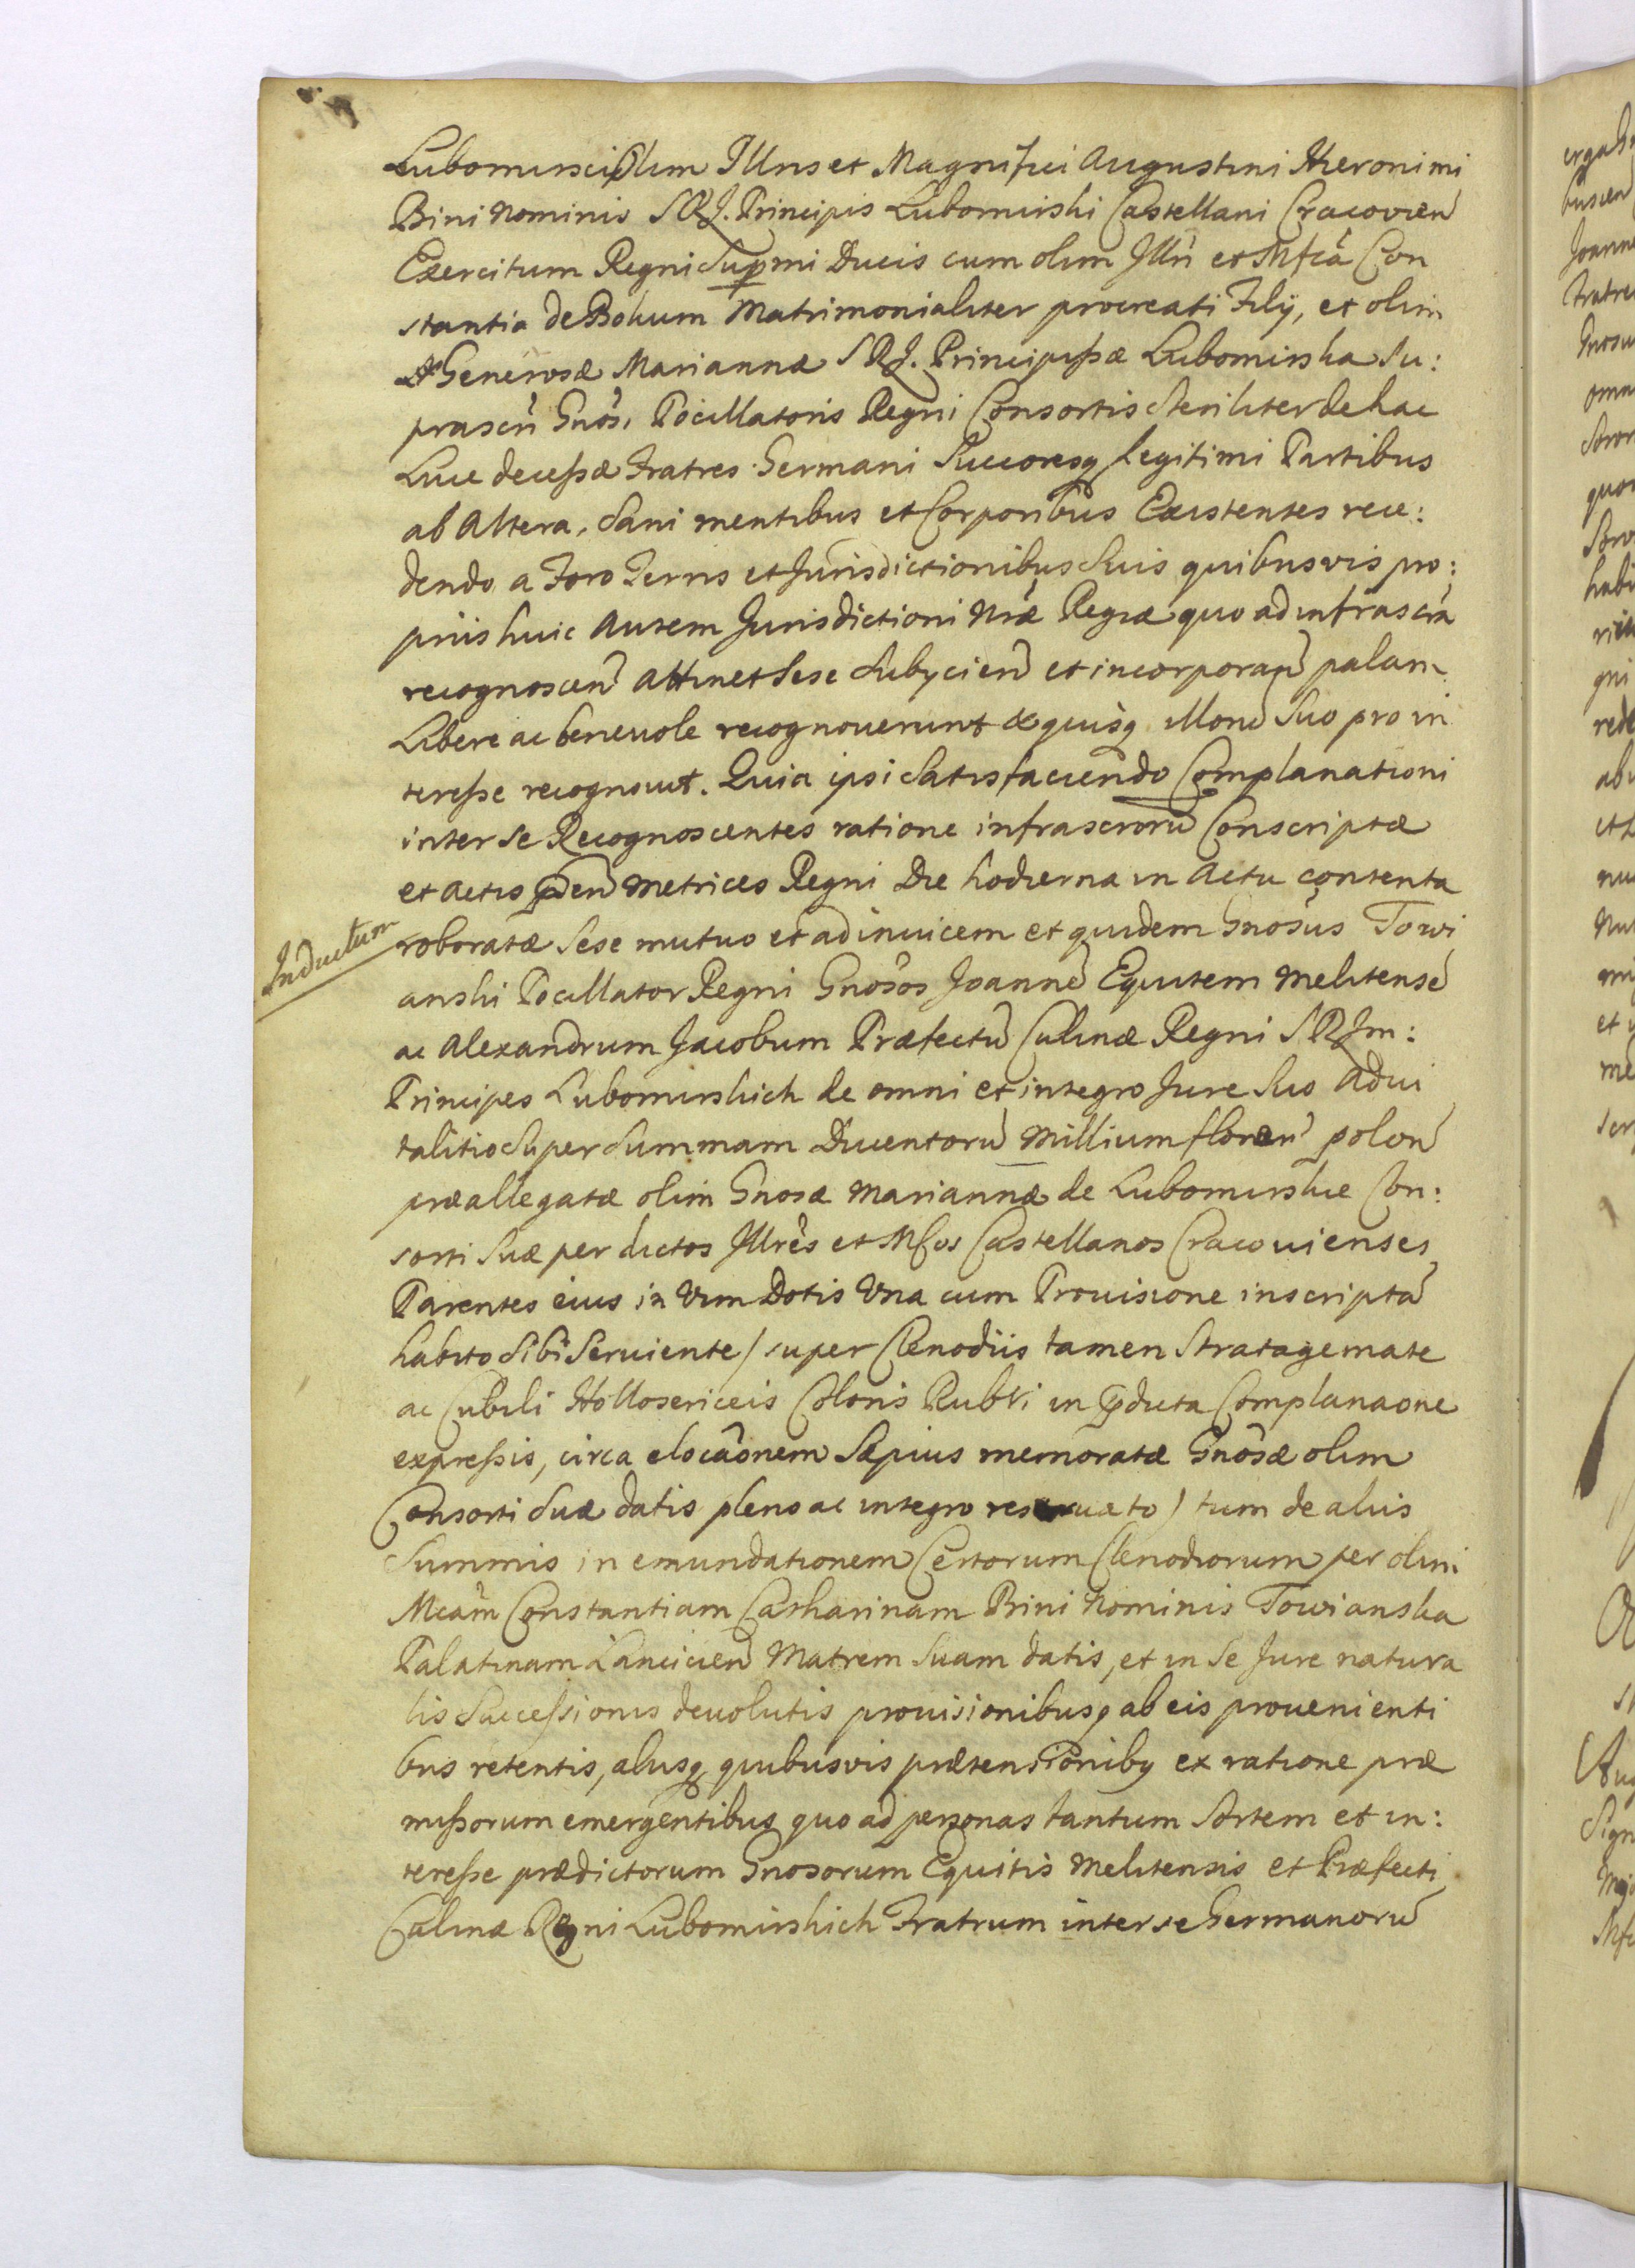 Lubomirsci Olim Illris et Magnifici Augustini Hieronimi
Bini Nominis S R J. Principis Lubomirski Castellani Cracovien
Exercitum Regni Supmi Ducis cum olim Illri et Mfca Con
stantia de Bohum Matrimonialiter procreati Filÿ, et olim
Generosæ Mariannæ S R J. Principissæ Lubomirska Su:
prascri Gnosi Pocillatoris Regni Consortis Steriliter de hac
Luce decessæ Fratres Germani Succoresq Legitimi Partibus
ab Altera, Sani mentibus et Corporibus Existentes rece:
dendo a Foro Terris et Jurisdictionibus Suis quibusvis pro:
priis huic Autem Jurisdictioni Nræ Regiæ quo ad infrascra
recognoscen Attinet Sese Subÿcien et incorporan palam
Libere ac benevole recognouerunt & quisq Illorū Suo pro in
teresse recognouit. Quia ipsi Satisfaciendo Complanationi
inter Se Recognoscentes ratione infrascrorū Conscriptæ
et Actis pden Metrices Regni Die hodierna in Actu contenta
Inductum
roboratæ Sese mutuo et ad inuicem et quidem Gnosus Towi
anski Pocillator Regni Gnosos Joannē Equitem Melitensē
ac Alexandrum Jacobum Præfectū Culinæ Regni S R Jm:
Principes Lubomirskich de omni et integro Jure Suo Adui
talitio Super Summam Ducentorū Millium floren polon
præallegatæ olim Gnosæ Mariannæ de Lubomirskie Con:
sorti Suæ per dictos Illres et Mfcos Castellanos Cracouienses
Parentes eius in Vim Dotis Vna cum Prouisione inscripta
habito Sibi Seruiente / super Clenodiis tamen Stratagemate
ac Cubili Hollosericeis Coloris Rubri in pdicta Complanaone
expressis, circa elocaonem Sæpius memoratæ Gnosæ olim
Consorti Suæ datis pleno ac integro reseruato) tum de aliis
Summis in emundationem Certorum Clenodiorum per olim
Mcam Constantiam Catharinam Bini Nominis Towianska
Palatinam Lancicien Matrem Suam datis, et in Se Jure natura
lis Successionis deuolutis prouisionibusq ab eis prouenienti
bus retentis, aliisq quibusvis prætensionibq ex ratione præ
missorum emergentibus quo ad personas tantum Sortem et in:
teresse prædictorum Gnosorum Equitis Melitensis et Præfecti
Culinæ Regni Lubomirskich Fratrum inter se Germanorū